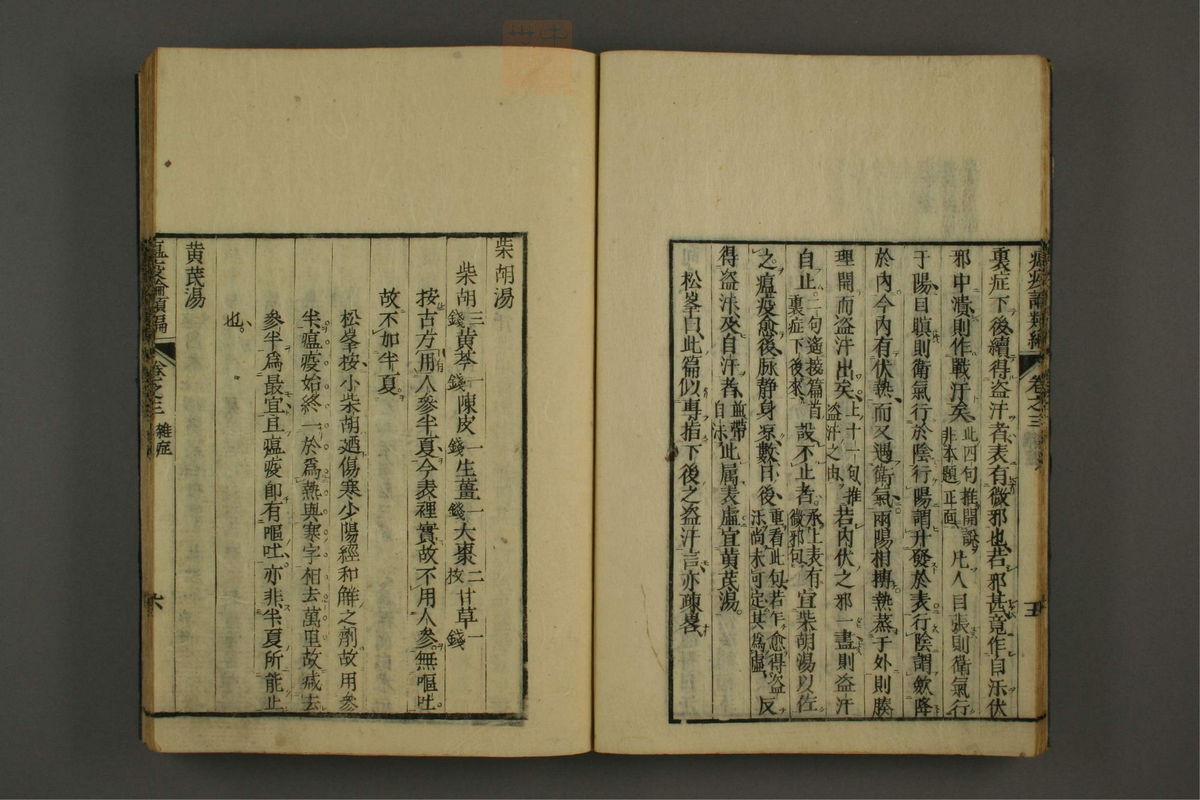 瘟疫論類編 卷之三 五
裏症下後續得盜汗者表有微邪也若邪甚竟作自汗伏
邪中潰則作戰汗矣此四句推開說非本題正面凡人目張則衛氣行
于陽目瞑則衛氣行於陰行陽謂升發於表行陰謂斂降
於內今內有伏熱而又遇衛氣兩陽相搏熱蒸于外則腠
理開而盜汗出矣上十一句推盜汗之由若內伏之邪一盡則盜汗
自止二句遙接篇首裏症下後來設不止者承上表有微邪句宜柴胡湯以佐
之瘟疫愈後脉静身凉數日後重看此句若乍愈得盜汗尚未可定其為虛反
得盜汗及自汗者並帶自汗此属表虛宜黄芪湯
松峯曰此篇似専指下後之盜汗言亦疎畧
柴胡湯
柴胡三錢黄芩一錢陳皮一錢生薑一錢大棗二枚甘草一錢
按古方用人參半夏今表裡實故不用人參無嘔吐
故不加半夏
松峯按小柴胡廼傷寒少陽經和解之劑故用參
半瘟疫始終一於為熱與寒字相去萬里故减去
參半為最宜且瘟疫即有嘔吐亦非半夏所能止
也
黄芪湯
瘟疫論類編 卷之三 雜症 六